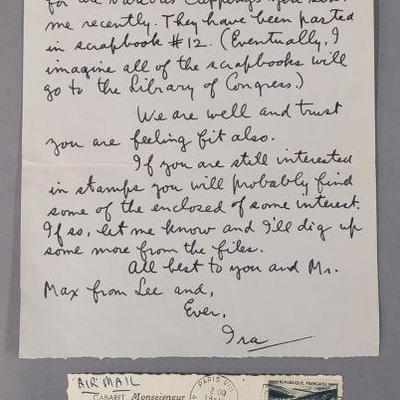 for the various clippings you sent
me recently. They have been pasted
in scrapbook #12. (Eventually, I
imagine all of the scrapbooks will
go to the Library of Congress.)
We are well and trust
you are feeling fit also.
If you are still interested
in stamps you will probably find
some of the enclosed of some interest.
If so, let me know and I'll dig up
some more from the files.
All best to you and Mr.
Max from Lee and,
Ever,
Ira
AIR MAIL
CABARET Monseigneur
PARIS VIII
2 00
REPUBLIQUE FRANÇAISE